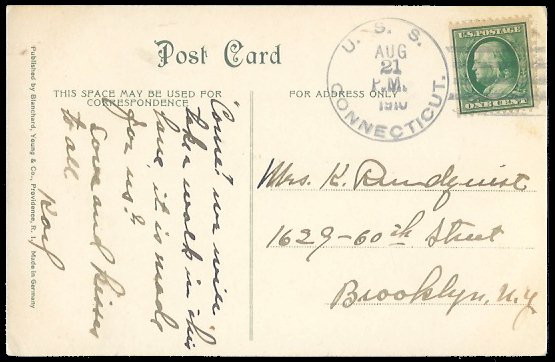 Post Card
THIS SPACE MAY BE USED FOR
CORRESPONDENCE
FOR ADDRESS ONLY
Published by Blanchard, Young & Co., Providence, R. I. Made in Germany
U. S. S.
AUG
21
P.M.
1910
CONNECTICUT.
U.S. POSTAGE
ONE CENT
"Come! we will
take walk in this
lane, it is made
for us."
Love and kisses
to all
Mrs. K. Rundquist
1629-60th Street
Brooklyn, N.Y.